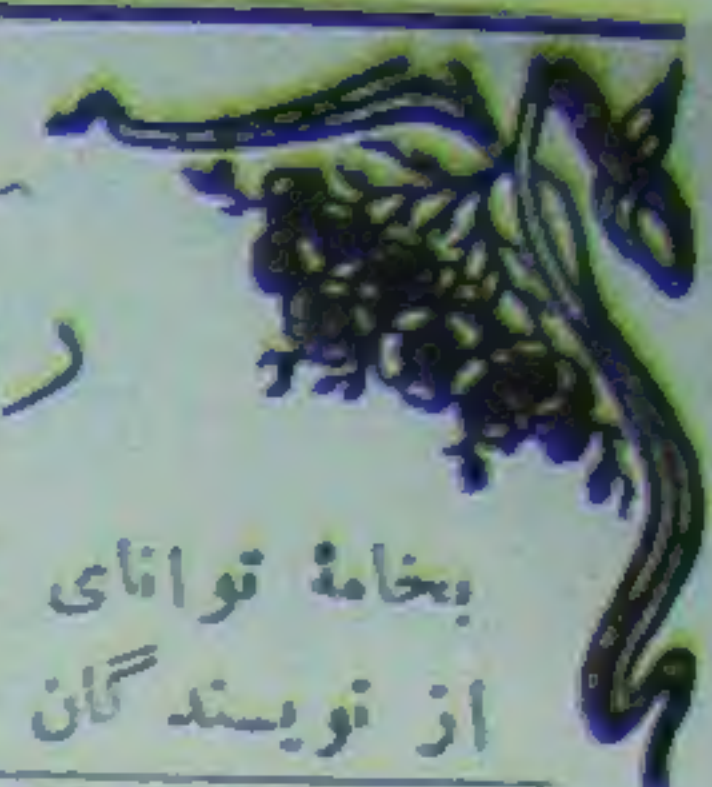 بخامهٔ توانای
از نویسندگان